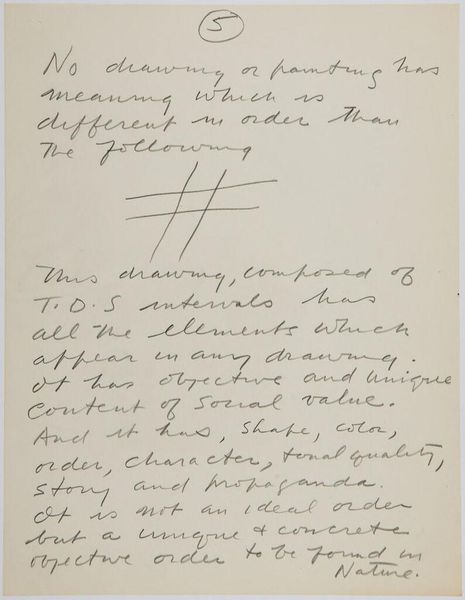 5
No drawing or painting has
meaning which is
different in order than
the following
#
This drawing, composed of
T.D.S intervals has
all the elements which
appear in any drawing.
It has objective and unique
content of social value.
And it has, shape, color,
order, character, tonal quality,
story and propaganda.
It is not an ideal order
but a unique & concrete
objective order to be found in
Nature.